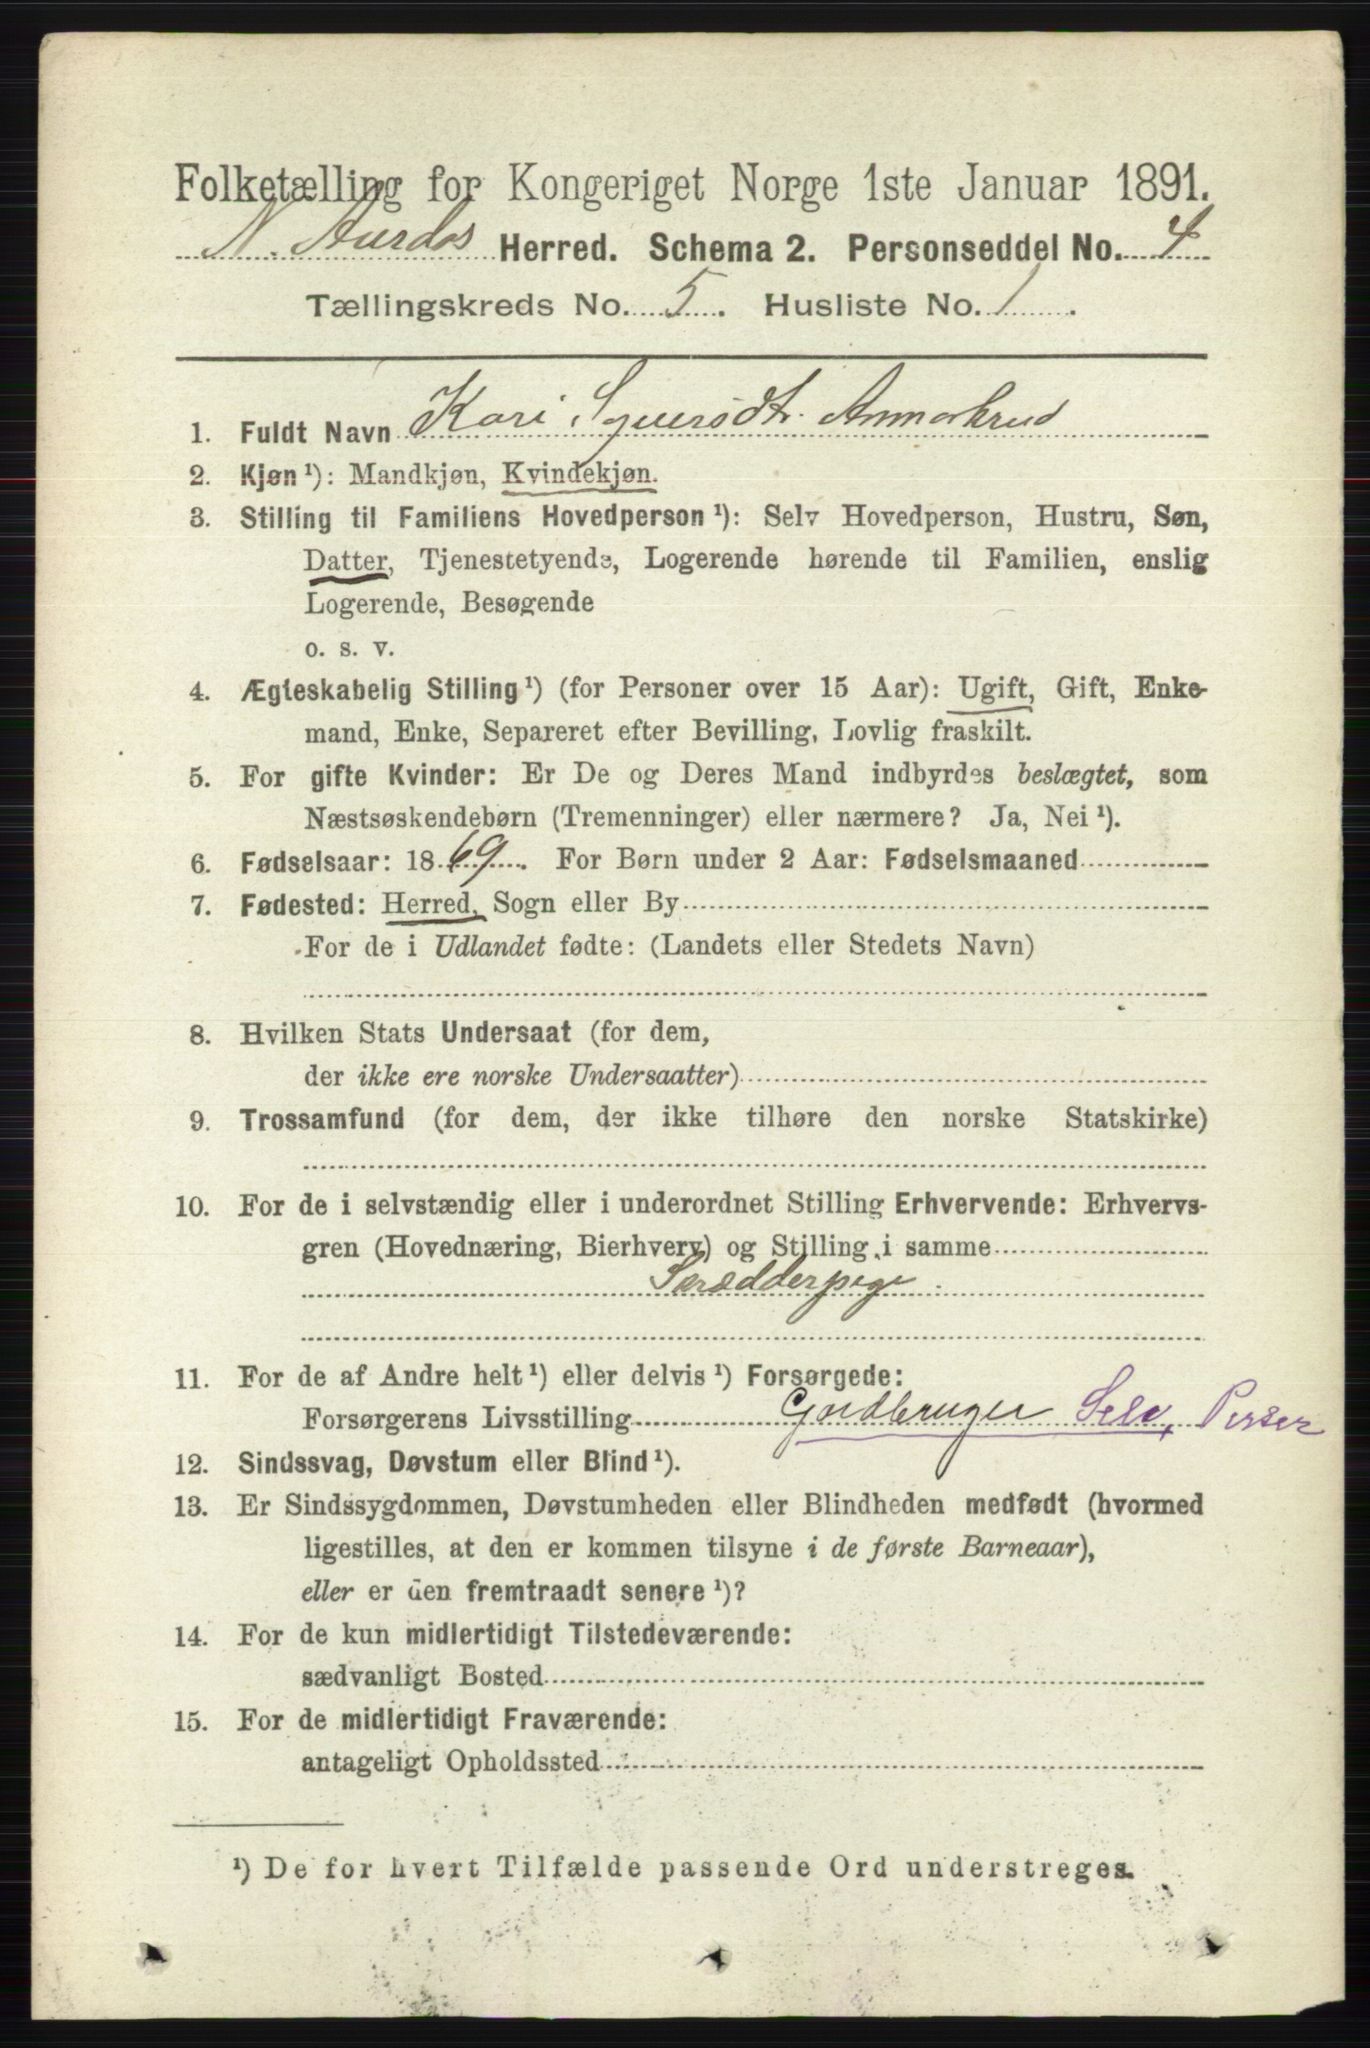 Folketælling for Kongeriget Norge 1ste Januar 1891.
N. Aurdals Herred. Schema 2. Personseddel No. 4
Tællingskreds No. 5. Husliste No. 1.
1. Fuldt Navn Kari Syversdt.
2. Kjøn ¹): Mandkjøn, Kvindekjøn.
3. Stilling til Familiens Hovedperson ¹): Selv Hovedperson, Hustru, Søn,
Datter, Tjenestetyende, Logerende hørende til Familien, enslig
Logerende, Besøgende
o. s. v.
4. Ægteskabelig Stilling ¹) (for Personer over 15 Aar): Ugift, Gift, Enke-
mand, Enke, Separeret efter Bevilling, Lovlig fraskilt.
5. For gifte Kvinder: Er De og Deres Mand indbyrdes beslægtet, som
Næstsøskendebørn (Tremenninger) eller nærmere? Ja, Nei ¹).
6. Fødselsaar: 1869. For Børn under 2 Aar: Fødselsmaaned
7. Fødested: Herred, Sogn eller By
For de i Udlandet fødte: (Landets eller Stedets Navn)
8. Hvilken Stats Undersaat (for dem,
der ikke ere norske Undersaatter)
9. Trossamfund (for dem, der ikke tilhøre den norske Statskirke)
10. For de i selvstændig eller i underordnet Stilling Erhvervende: Erhvervs-
gren (Hovednæring, Bierhverv) og Stilling i samme
Skrædderpige.
11. For de af Andre helt ¹) eller delvis ¹) Forsørgede:
Forsørgerens Livsstilling Gardbruger Selv,
12. Sindssvag, Døvstum eller Blind ¹).
13. Er Sindssygdommen, Døvstumheden eller Blindheden medfødt (hvormed
ligestilles, at den er kommen tilsyne i de første Barneaar),
eller er den fremtraadt senere ¹)?
14. For de kun midlertidigt Tilstedeværende:
sædvanligt Bosted
15. For de midlertidigt Fraværende:
antageligt Opholdssted
¹) De for hvert Tilfælde passende Ord understreges.